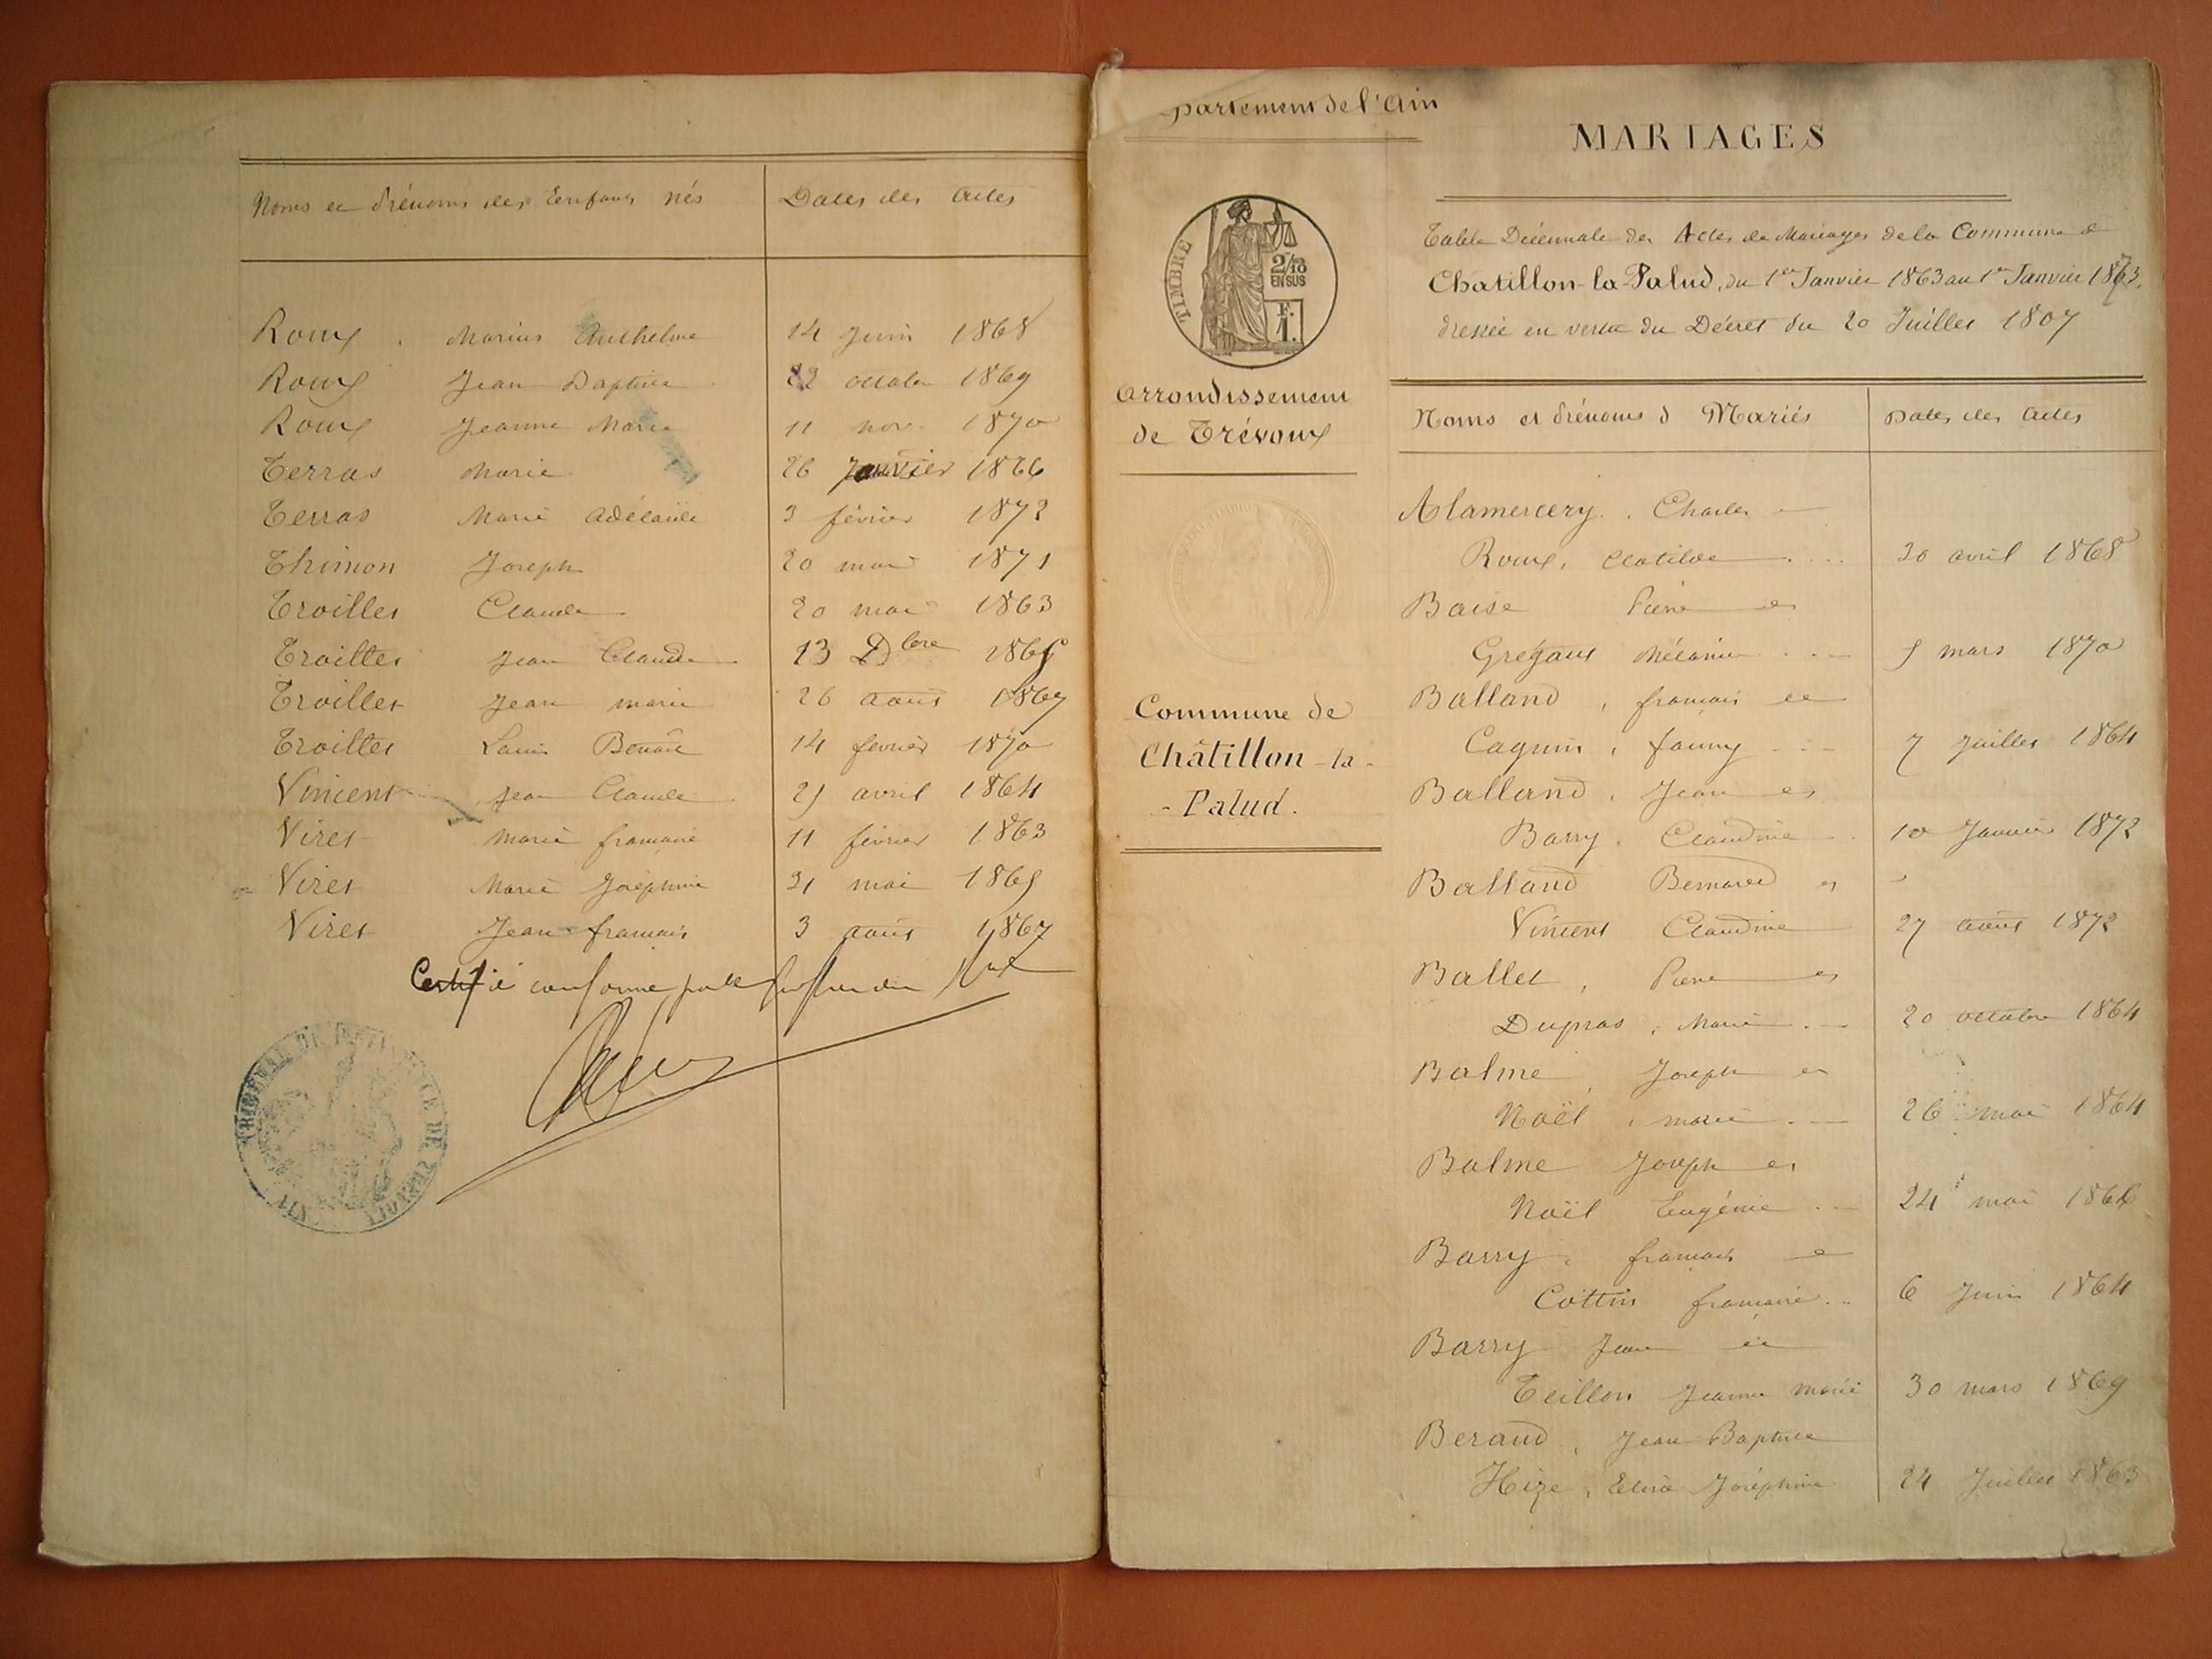 Noms et Prénoms des Enfants nés	Dates des Actes
Roux Marius Anthelme 14 Juin 1868
Roux Jean Baptiste 22 octobre 1869
Roux Jeanne Marie 11 nov. 1870
Terras Marie 26 Janvier 1866
Terras Marie Adélaïde 3 février 1872
Thimon Joseph 20 mai 1871
Troilles Claude 20 mai 1863
Troilles Jean Claude 13 Dbre 1865
Troilles Jean Marie 26 août 1867
Troilles Louis Benoit 14 février 1870
Vincent Jean Claude 25 avril 1864
Viret Marie françoise 11 février 1863
Viret Marie Joséphine 31 mai 1865
Viret Jean françois 3 août 1867
Certifié conforme par le
TRIBUNAL DE 1ère INSTANCE DE TRÉVOUX
AIN
partement de l'Ain
TIMBRE
2/10
EN SUS
F.
1.
Arrondissement
de Trévoux
Commune de
Châtillon-la-
-Palud.
MARIAGES
Table Décennale des Actes de Mariages de la Commune de
Chatillon-la-Palud, du 1er Janvier 1863 au 1er Janvier 1873,
dressée en vertu du Décret du 20 Juillet 1807
Noms et Prénoms d Mariés	Dates des Actes
Alamercery. Charles
Roux, Clotilde 30 avril 1868
Baise Pierre et
Greffaut Mélanie 5 mars 1870
Balland, françois et
Caquin, fanny 7 Juillet 1864
Balland, Jean et
Barry. Claudine 10 Janvier 1872
Balland Bernard et
Vincent Claudine 27 août 1872
Ballet, Pierre et
Dupras, Marie 20 octobre 1864
Balme, Joseph et
Noël, marie 26 mai 1864
Balme Joseph et
Noël Eugénie 24 mai 1866
Barry, françois et
Cottin françoise 6 Juin 1864
Barry Jean et
Teillon Jeanne Marie 30 mars 1869
Beraud, Jean Baptiste
Hize, Elisa Joséphine 24 Juillet 1863